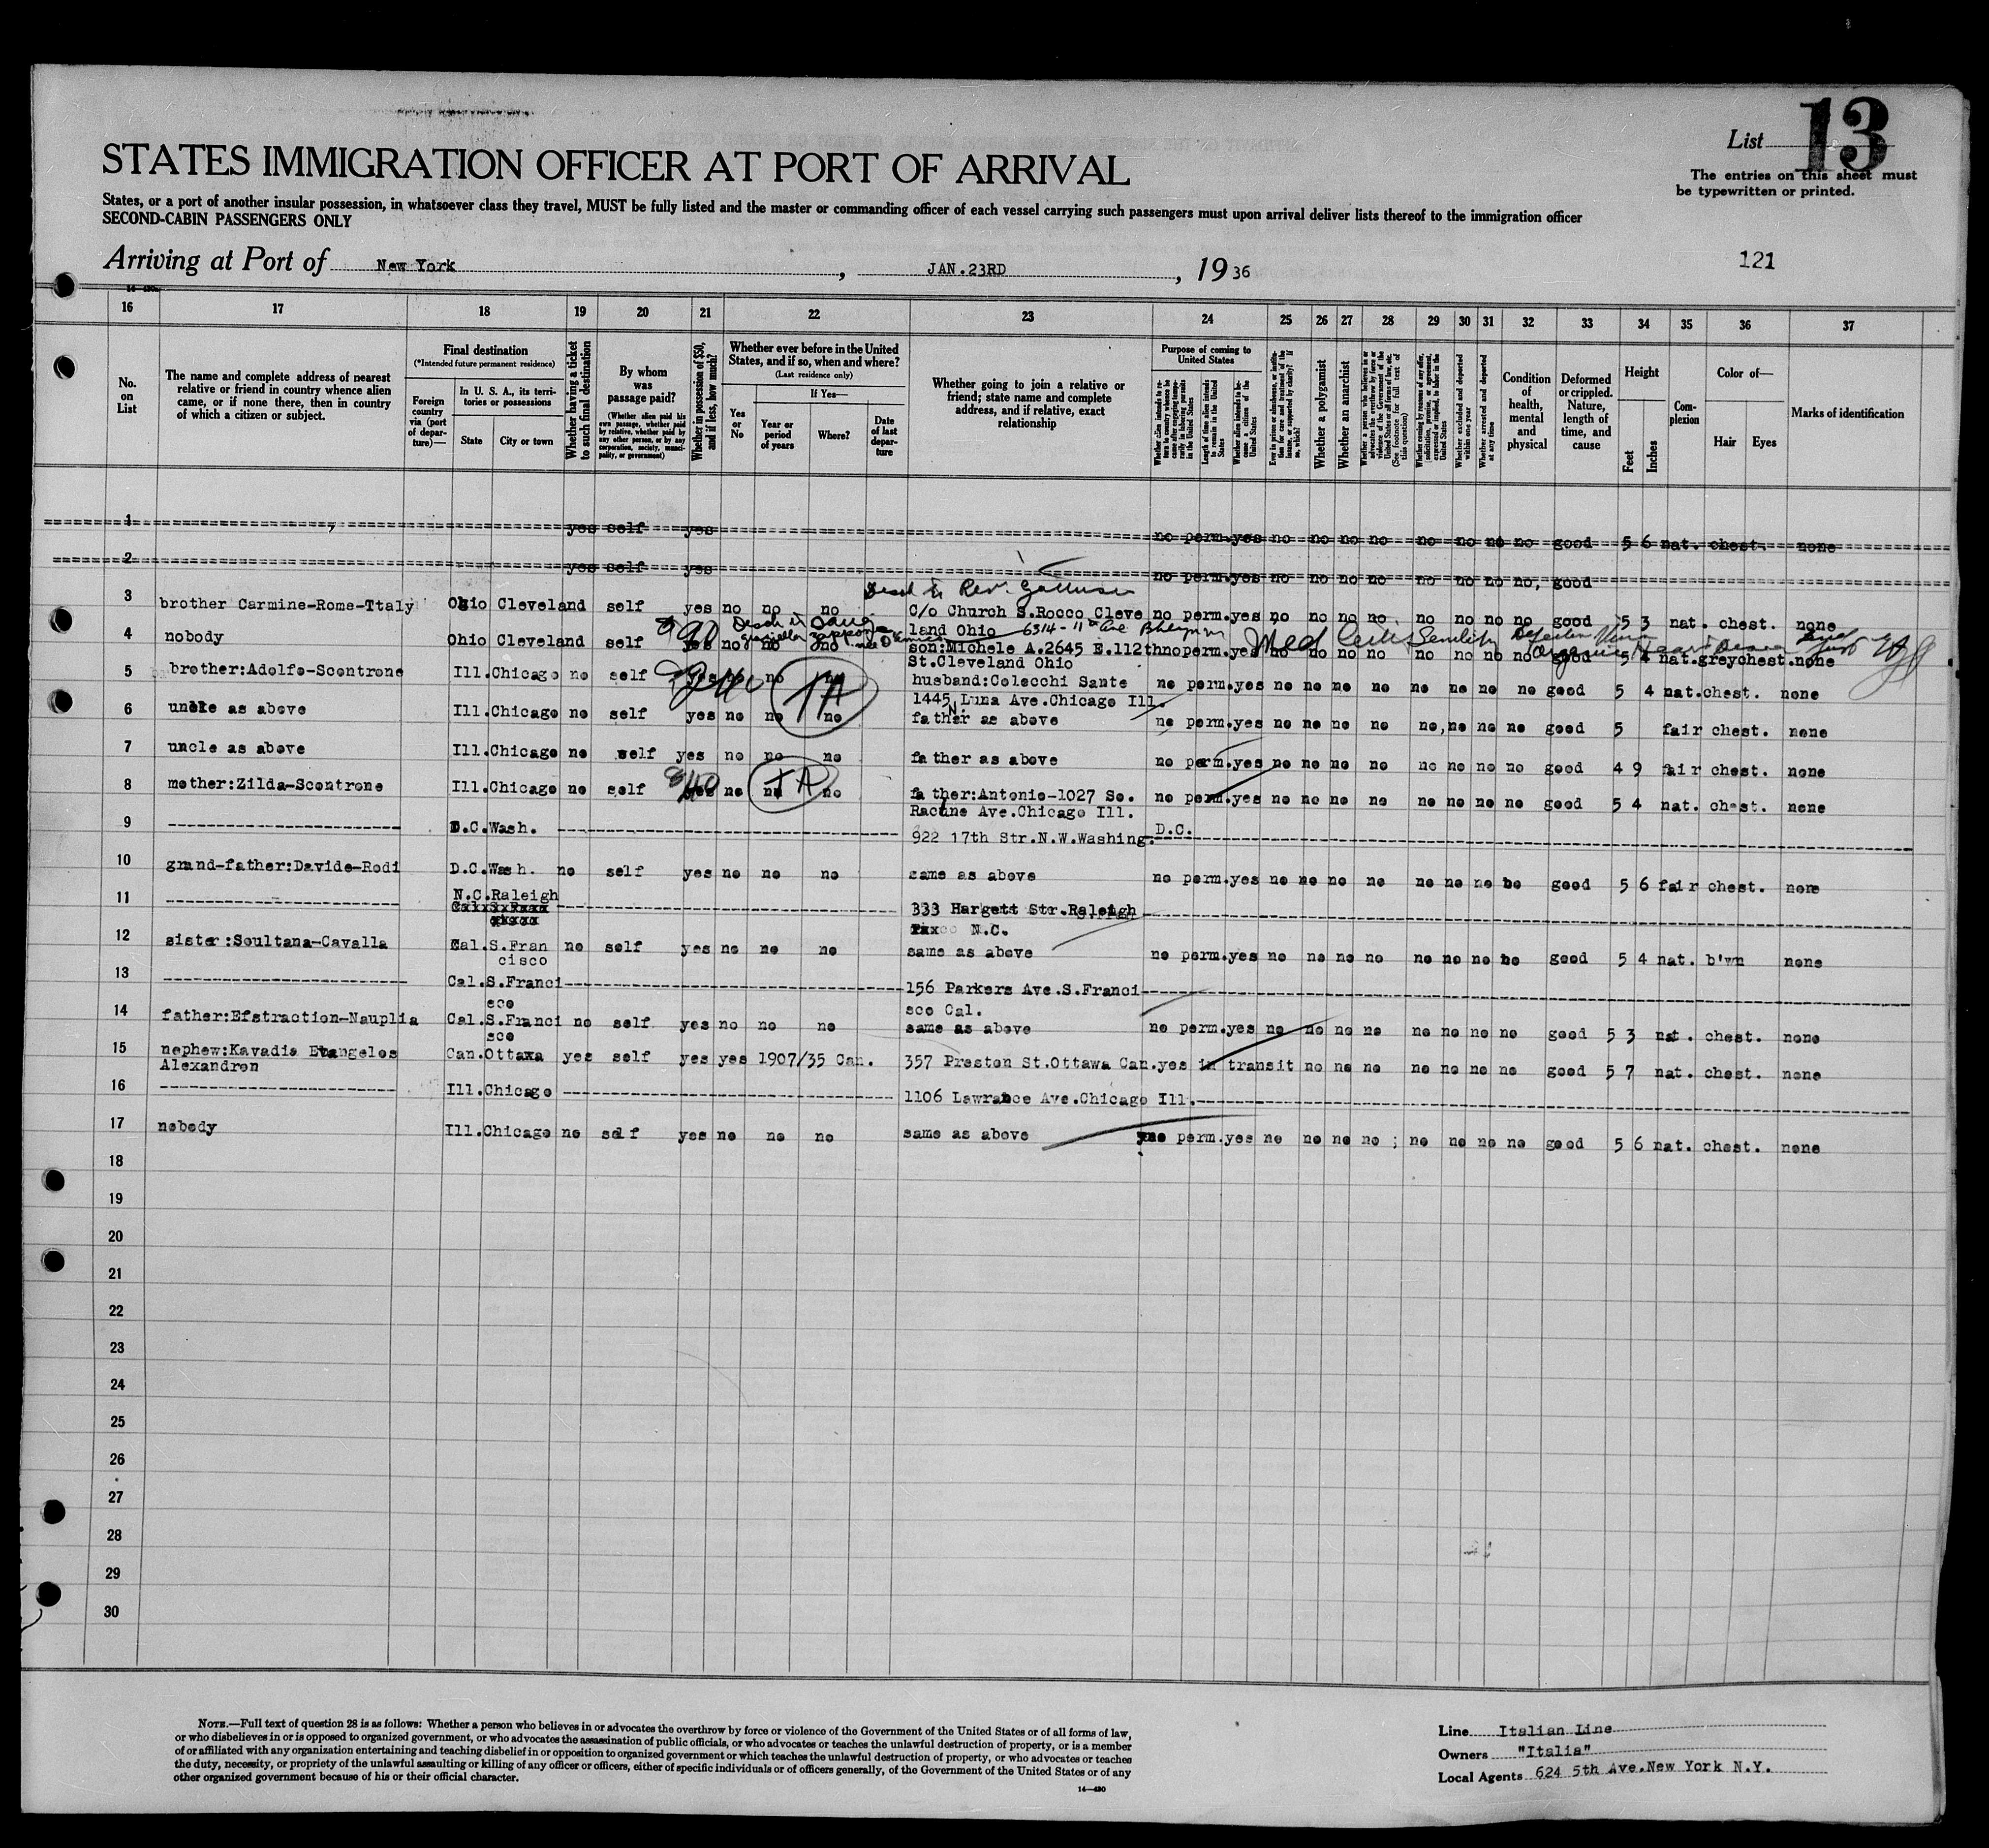 List 13
The entries on this sheet must
be typewritten or printed.
STATES IMMIGRATION OFFICER AT PORT OF ARRIVAL
States, or a port of another insular possession, in whatsoever class they travel, MUST be fully listed and the master or commanding officer of each vessel carrying such passengers must upon arrival deliver lists thereof to the immigration officer
SECOND-CABIN PASSENGERS ONLY
Arriving at Port of New York, JAN.23RD, 1936
121
16 17 18 19 20 21 22 23 24 25 26 27 28 29 30 31 32 33 34 35 36 37
No. on List
The name and complete address of nearest
relative or friend in country whence alien
came, or if none there, then in country
of which a citizen or subject.
Final destination
(*Intended future permanent residence)
Foreign country via (port of departure)—
In U. S. A., its territories or possessions
State
City or town
Whether having a ticket to such final destination
By whom was passage paid?
(Whether alien paid his own passage, whether paid by relative, whether paid by any other person, or by any corporation, society, municipality, or government)
Whether in possession of $50, and if less, how much?
Whether ever before in the United States, and if so, when and where?
(Last residence only)
Yes or No
If Yes—
Year or period of years
Where?
Date of last departure
Whether going to join a relative or
friend; state name and complete
address, and if relative, exact
relationship
Purpose of coming to United States
Whether alien intends to return to country whence he came after engaging temporarily in laboring pursuits in the United States
Length of time alien intends to remain in the United States
Whether alien intends to become a citizen of the United States
Whether a polygamist
Whether an anarchist
Whether excluded and deported within one year
Whether arrested and deported at any time
Condition of health, mental and physical
Deformed or crippled. Nature, length of time, and cause
Height
Feet
Inches
Complexion
Color of—
Hair
Eyes
Marks of identification
1 yes self yes no perm.yes no no no no no no no no good 5 6 nat. chest. none
2 yes self yes no perm.yes no no no no no no no no, good
3 brother Carmine-Rome-Ttaly Ohio Cleveland self yes no no no c/o Church S.Rocco Cleve no perm.yes no no no no no no no no good 5 3 nat. chest. none
land Ohio 6314-11th Ave
4 nobody Ohio Cleveland self yes no no no son:Michele A.2645 E.112th no perm.yes no no no no no no no no good 5 4 nat.greychest.none
St.Cleveland Ohio
5 brother:Adolfo-Scontrone Ill.Chicago no self yes no no no husband:Colecchi Sante no perm.yes no no no no no no no no good 5 4 nat.chest. none
TA
1445 N. Luna Ave.Chicago Ill.
6 uncle as above Ill.Chicago no self yes no no no father as above no perm.yes no no no no no, no no no good 5 fair chest. none
7 uncle as above Ill.Chicago no self yes no no no father as above no perm.yes no no no no no no no no good 4 9 fair chest. none
8 mother:Zilda-Scontrone Ill.Chicago no self yes no no no father:Antonio-1027 So. no perm.yes no no no no no no no no good 5 4 nat. chest. none
TA
Racine Ave.Chicago Ill.
9 D.C.Wash. 922 17th Str.N.W.Washing. D.C.
10 grand-father:Davide-Rodi D.C.Wash. no self yes no no no same as above no perm.yes no no no no no no no no good 5 6 fair chest. none
11 N.C.Raleigh 333 Hargett Str.Raleigh
N.C.
12 sister:Soultana-Cavalla Cal.S.Fran no self yes no no no same as above no perm.yes no no no no no no no no good 5 4 nat. b'wn none
cisco
13 Cal.S.Franci 156 Parkers Ave.S.Franci
sco sco Cal.
14 father:Efstraction-Nauplia Cal.S.Franci no self yes no no no same as above no perm.yes no no no no no no no no good 5 3 nat. chest. none
sco
15 nephew:Kavadis Evangelos Can.Ottawa yes self yes yes 1907/35 Can. 357 Preston St.Ottawa Can.yes in transit no no no no no no no good 5 7 nat. chest. none
Alexandron
16 Ill.Chicago 1106 Lawrance Ave.Chicago Ill.
17 nobody Ill.Chicago no self yes no no no same as above no perm.yes no no no no ; no no no no good 5 6 nat. chest. none
18
19
20
21
22
23
24
25
26
27
28
29
30
NOTE.—Full text of question 28 is as follows: Whether a person who believes in or advocates the overthrow by force or violence of the Government of the United States or of all forms of law,
or who disbelieves in or is opposed to organized government, or who advocates the assassination of public officials, or who advocates or teaches the unlawful destruction of property, or is a member
of or affiliated with any organization entertaining and teaching disbelief in or opposition to organized government or which teaches the unlawful destruction of property, or who advocates or teaches
the duty, necessity, or propriety of the unlawful assaulting or killing of any officer or officers, either of specific individuals or of officers generally, of the Government of the United States or of any
other organized government because of his or their official character.
14—430
Line Italian Line
Owners "Italia"
Local Agents 624 5th Ave.New York N.Y.